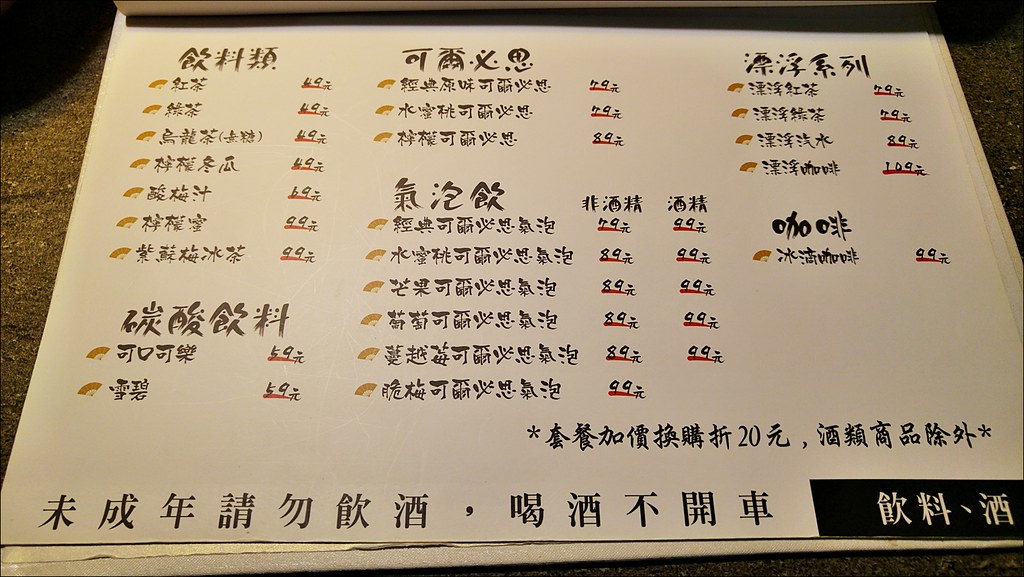 飲料類
紅茶 49元
綠茶 49元
烏龍茶(無糖) 49元
檸檬冬瓜 49元
酸梅汁 69元
檸檬蜜 99元
紫蘇梅冰茶 99元
碳酸飲料
可口可樂 59元
雪碧 59元
可爾必思
經典原味可爾必思 79元
水蜜桃可爾必思 79元
檸檬可爾必思 89元
氣泡飲 非酒精 酒精
經典可爾必思氣泡 79元 99元
水蜜桃可爾必思氣泡 89元 99元
芒果可爾必思氣泡 89元 99元
葡萄可爾必思氣泡 89元 99元
蔓越莓可爾必思氣泡 89元 99元
脆梅可爾必思氣泡 99元
漂浮系列
漂浮紅茶 79元
漂浮綠茶 79元
漂浮汽水 89元
漂浮咖啡 109元
咖啡
冰滴咖啡 99元
*套餐加價換購折20元，酒類商品除外*
未成年請勿飲酒，喝酒不開車
飲料、酒